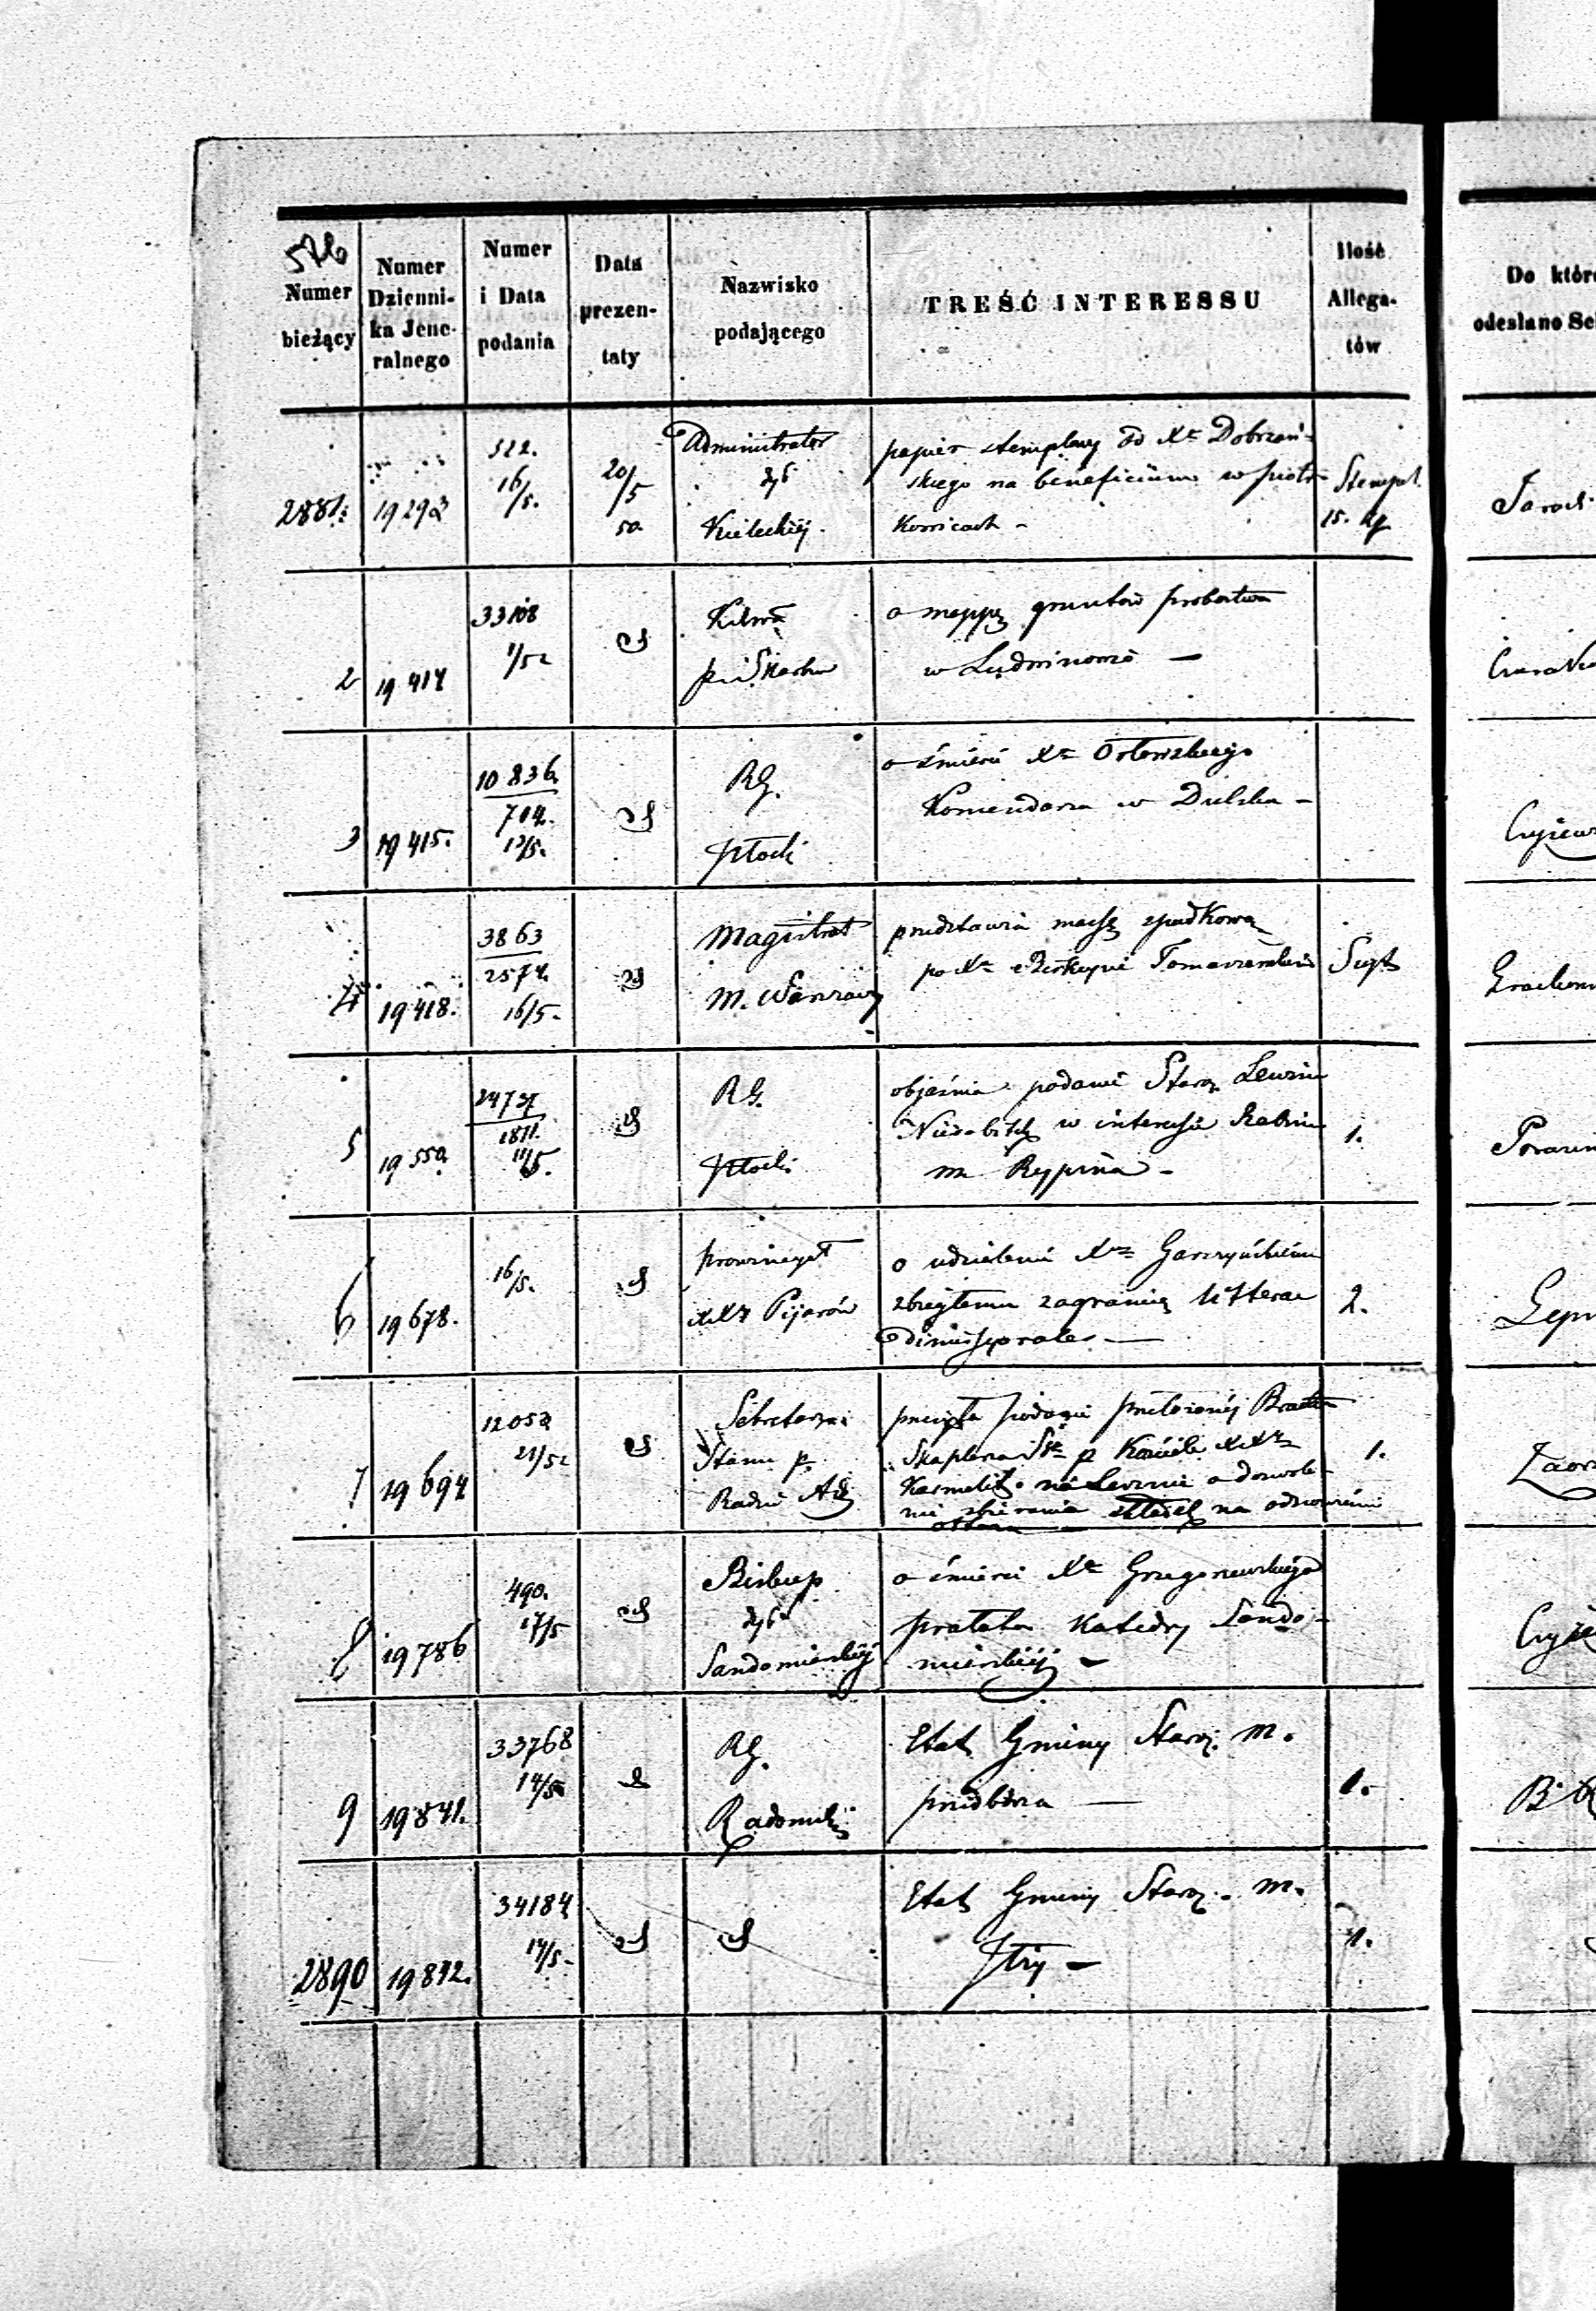 576
Numer
bieżący
Numer
Dzienni-
ka Jene-
ralnego
Numer
i Data
podania
Data
prezen-
taty
Nazwisko
podającego
TREŚĆ INTERESSU
Ilość
Allega-
tów
Do które
odesłano Se
2881.
19292
522.
16/5.
20/5
50
Administrator
dyś
Kieleckiej.
papier stemplowy od Xa Dobrzań-
skiego na beneficium w Piotr-
kowicach -
Stempel.
15. kp
2
19 414
33108
1/5
Kdwa
p i Skarbu
o mappę gruntów probostwa
w
3
19 415.
10 836
704.
13/5.
RG.
Płocki
o śmierci Xa Orłowskiego
Komendarza w Dulsku -
Czyżew
4
19 418.
3863
2574.
16/5.
Magistrat
M. Warszawy
przedstawia massę spadkową
po Xa Biskupie Tomaszewskim
5
19 550
24737
1871.
11/5.
RG.
Płocki
objaśnia podanie Staroz. Lewina
w interesie Rabina
m. Rypina -
1.
6
19 678.
16/5.
Prowincyał
XXy Pijarów
o udzielenie Xu Garczyńskiemu
zbiegłemu zagranicę litterae
dimissorales -
2.
7
19 694
12052
21/5
Sekretarz
Stanu p.
Radzie Ad
przesyła podanie przełożonej Bractwa
Szkaplerza S. p Kościele XXy
Karmelitów na Lesznie o dozwole-
nie zbierania składek na odnowienie
ołtarza
1.
8
19 786
490.
17/5
Biskup
dyś
Sandomierskiej
o śmierci Xa Grzegorzewskiego
prałata Katedry Sando-
mierskiej -
9
19 841.
33768
14/5
RG.
Radomski
Etat Gminy Staroz. M.
Przedborza -
1.
2890
19 892.
34184
14/5.
Etat Gminy Staroz. M.
Iłży -
1.